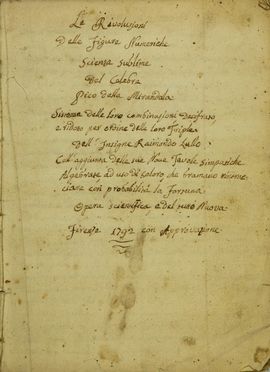 Le Revoluzioni
Delle Figure Numeriche
Scienza sublime
Del Celebre
Pico della Mirandola
Sistema delle loro combinazioni Decifrato
e ridotto per ordine delle loro Triplici
Dell' Insigne Raimondo Lullo
Coll' aggiunta delle sue Nove Tavole simpatiche
Algebrate ad uso di coloro, che bramano
ciare con probabilità la Fortuna
Opera scientifica e del tutto Nuova
Firenze 1792 con Approvazione